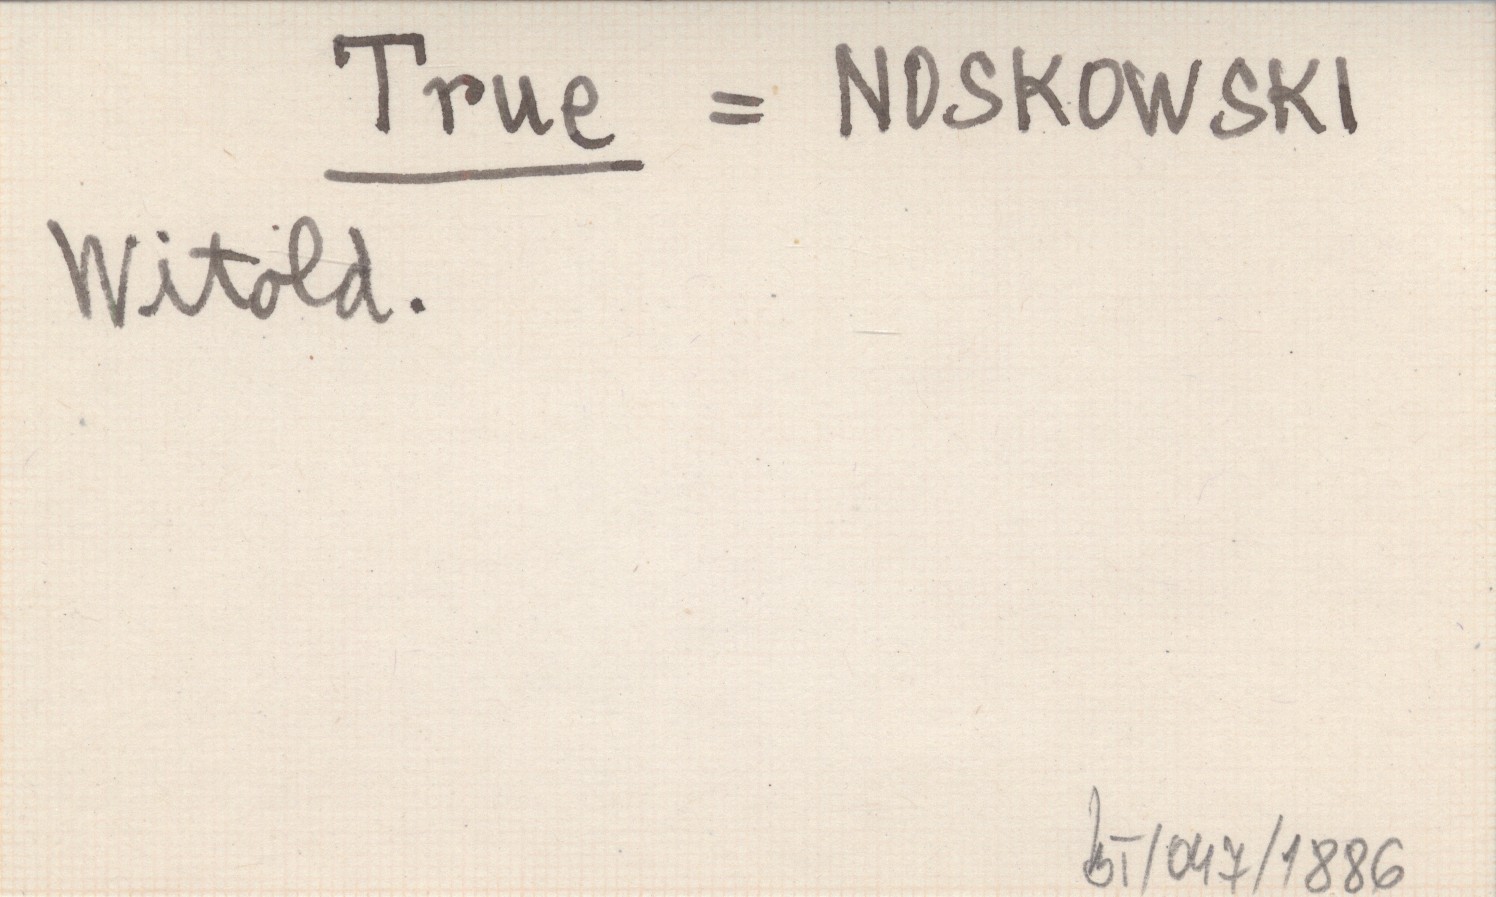 True = NOSKOWSKI
Witold.
/047/1886